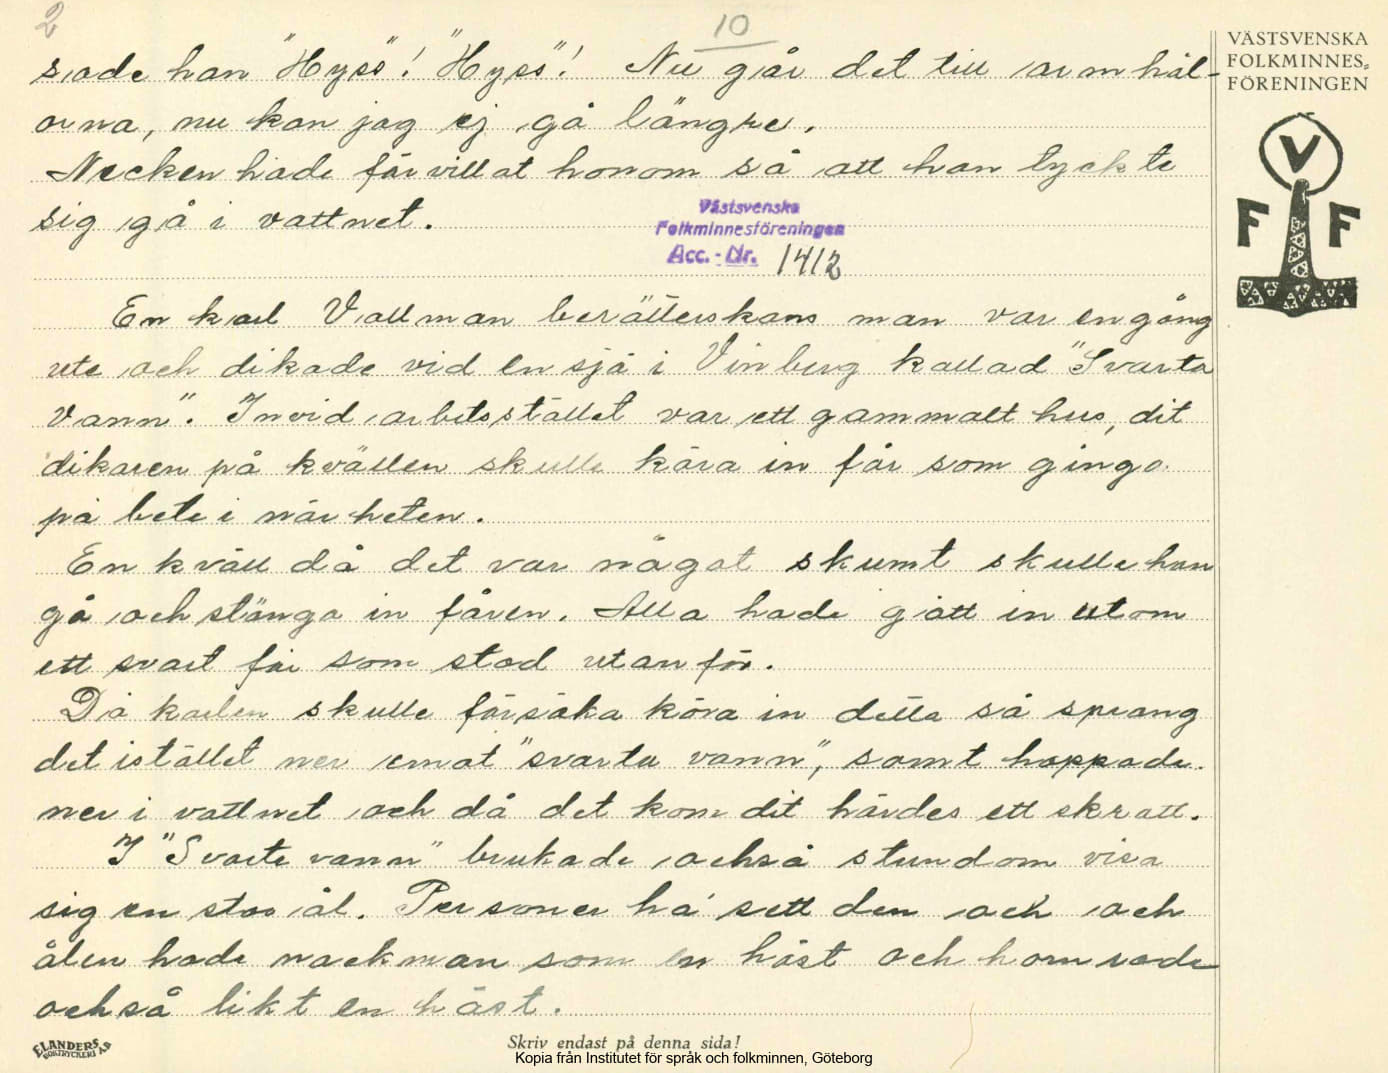 2
10
sade han "Hyss"! "Hyss"! Nu går det till armhål-
orna, nu kan jag ej gå längre.
Necken hade förvillat honom så att han tyckte
sig gå i vattnet.
Västsvenska
Folkminnesföreningen
Acc.-Nr. 1412
En karl Vallman berätterskans man var en gång
ute och dikade vid en sjö i Vinberg kallad "Svarta
Vann". Invid arbetsstället var ett gammalt hus, dit
dikaren på kvällen skulle köra in får som gingo
på bete i närheten.
En kväll då det var något skumt skulle han
gå och stänga in fåren. Alla hade gått in utom
ett svart får som stod utanför.
Då karlen skulle försöka köra in detta så sprang
det istället ner emot "svarta vann", samt hoppade
ner i vattnet och då det kom dit hördes ett skratt.
I "Svarte vann" brukade också stundom visa
sig en stor ål. Personer ha' sett den och och
ålen hade nackman som en häst och hornsode
också likt en häst.
VÄSTSVENSKA
FOLKMINNES-
FÖRENINGEN
V
F F
ELANDERS
BOKTRYCKERI A.B
Skriv endast på denna sida!
Kopia från Institutet för språk och folkminnen, Göteborg